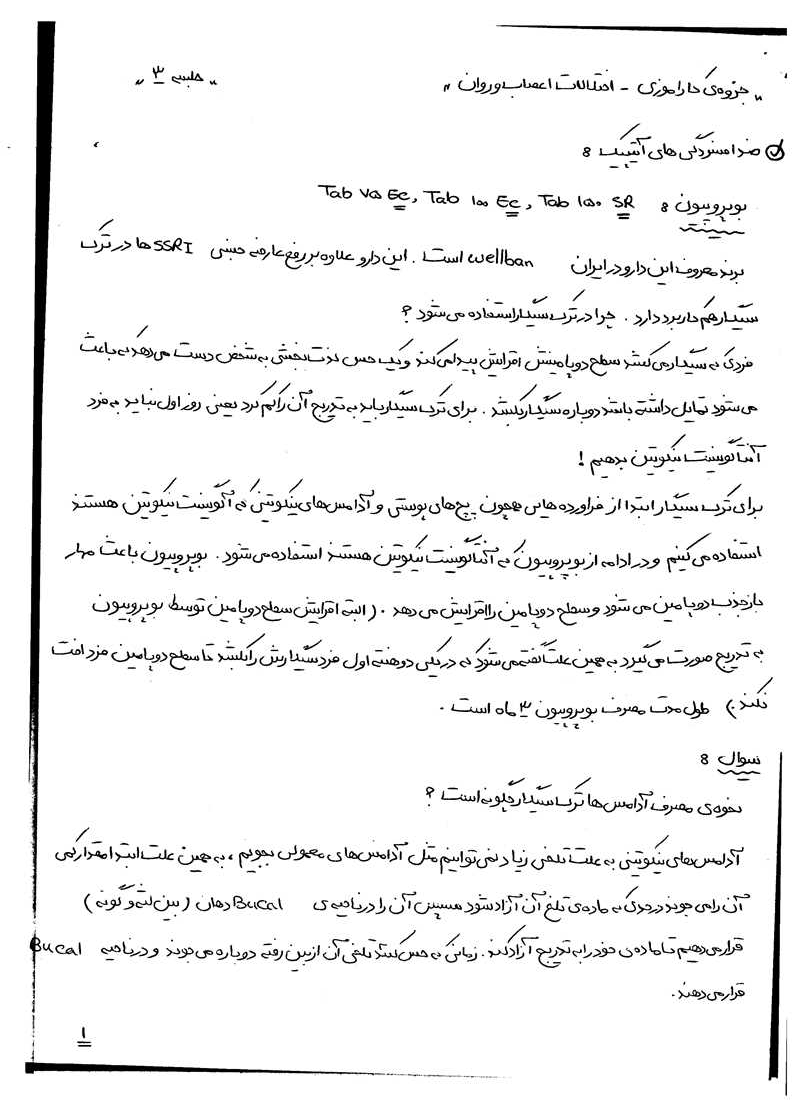 „ جزوه‌ی کارآموزی - اختلالات اعصاب و روان „ „ جلسه ۳ „
ضد افسردگی های آتیپیک :
بوپروپیون : Tab ۷۵ Ec, Tab ۱۰۰ Ec, Tab ۱۵۰ SR
برند معروف این دارو در ایران wellban است . این دارو علاوه بر رفع عارضه جنسی SSRI ها در ترک
سیگار هم کاربرد دارد . چرا در ترک سیگار استفاده می شود ؟
فردی که سیگار می کشد سطح دوپامینش افزایش پیدا می کند و یک حس لذت بخشی به شخص دست می دهد که باعث
می شود تمایل داشته باشد دوباره سیگار بکشد . برای ترک سیگار باید به تدریج آن را کم کرد یعنی روز اول نباید به فرد
آنتاگونیست نیکوتین بدهیم !
برای ترک سیگار ابتدا از فراورده هایی همچون پچ های پوستی و آدامس های نیکوتینی که آگونیست نیکوتین هستند
استفاده می کنیم و در ادامه از بوپروپیون که آنتاگونیست نیکوتین هستند استفاده می شود . بوپروپیون باعث مهار
بازجذب دوپامین می شود و سطح دوپامین را افزایش می دهد . ( البته افزایش سطح دوپامین توسط بوپروپیون
به تدریج صورت می گیرد به همین علت گفته می شود که در یکی دو هفته اول فرد سیگارش را بکشد تا سطح دوپامین فرد افت
نکند .) طول مدت مصرف بوپروپیون ۳ ماه است .
سوال :
نحوه ی مصرف آدامس ها ترک سیگار چگونه است ؟
آدامس های نیکوتینی به علت تلخی زیاد نمی توانیم مثل آدامس های معمولی بجویم ، به همین علت ابتدا مقدار کمی
آن را می جوند در حدی که ماده ی تلخ آن آزاد شود سپس آن را در ناحیه ی Bucal دهان ( بین لثه و گونه )
قرار می دهیم تا ماده ی خود را به تدریج آزاد کند . زمانی که حس کنند تلخی آن از بین رفته دوباره می جوند و در ناحیه Bucal
قرار می دهند .
۱